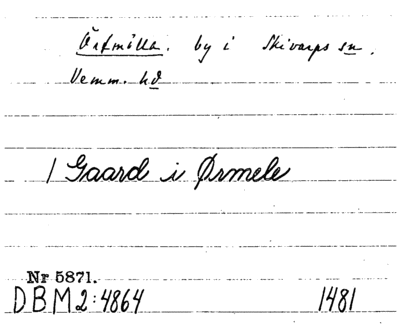 Örtmölla. by i Skivarps sn.
Vemm. hd
1 Gaard i Ørmele
Nr 5871.
DBM2:4864 1481